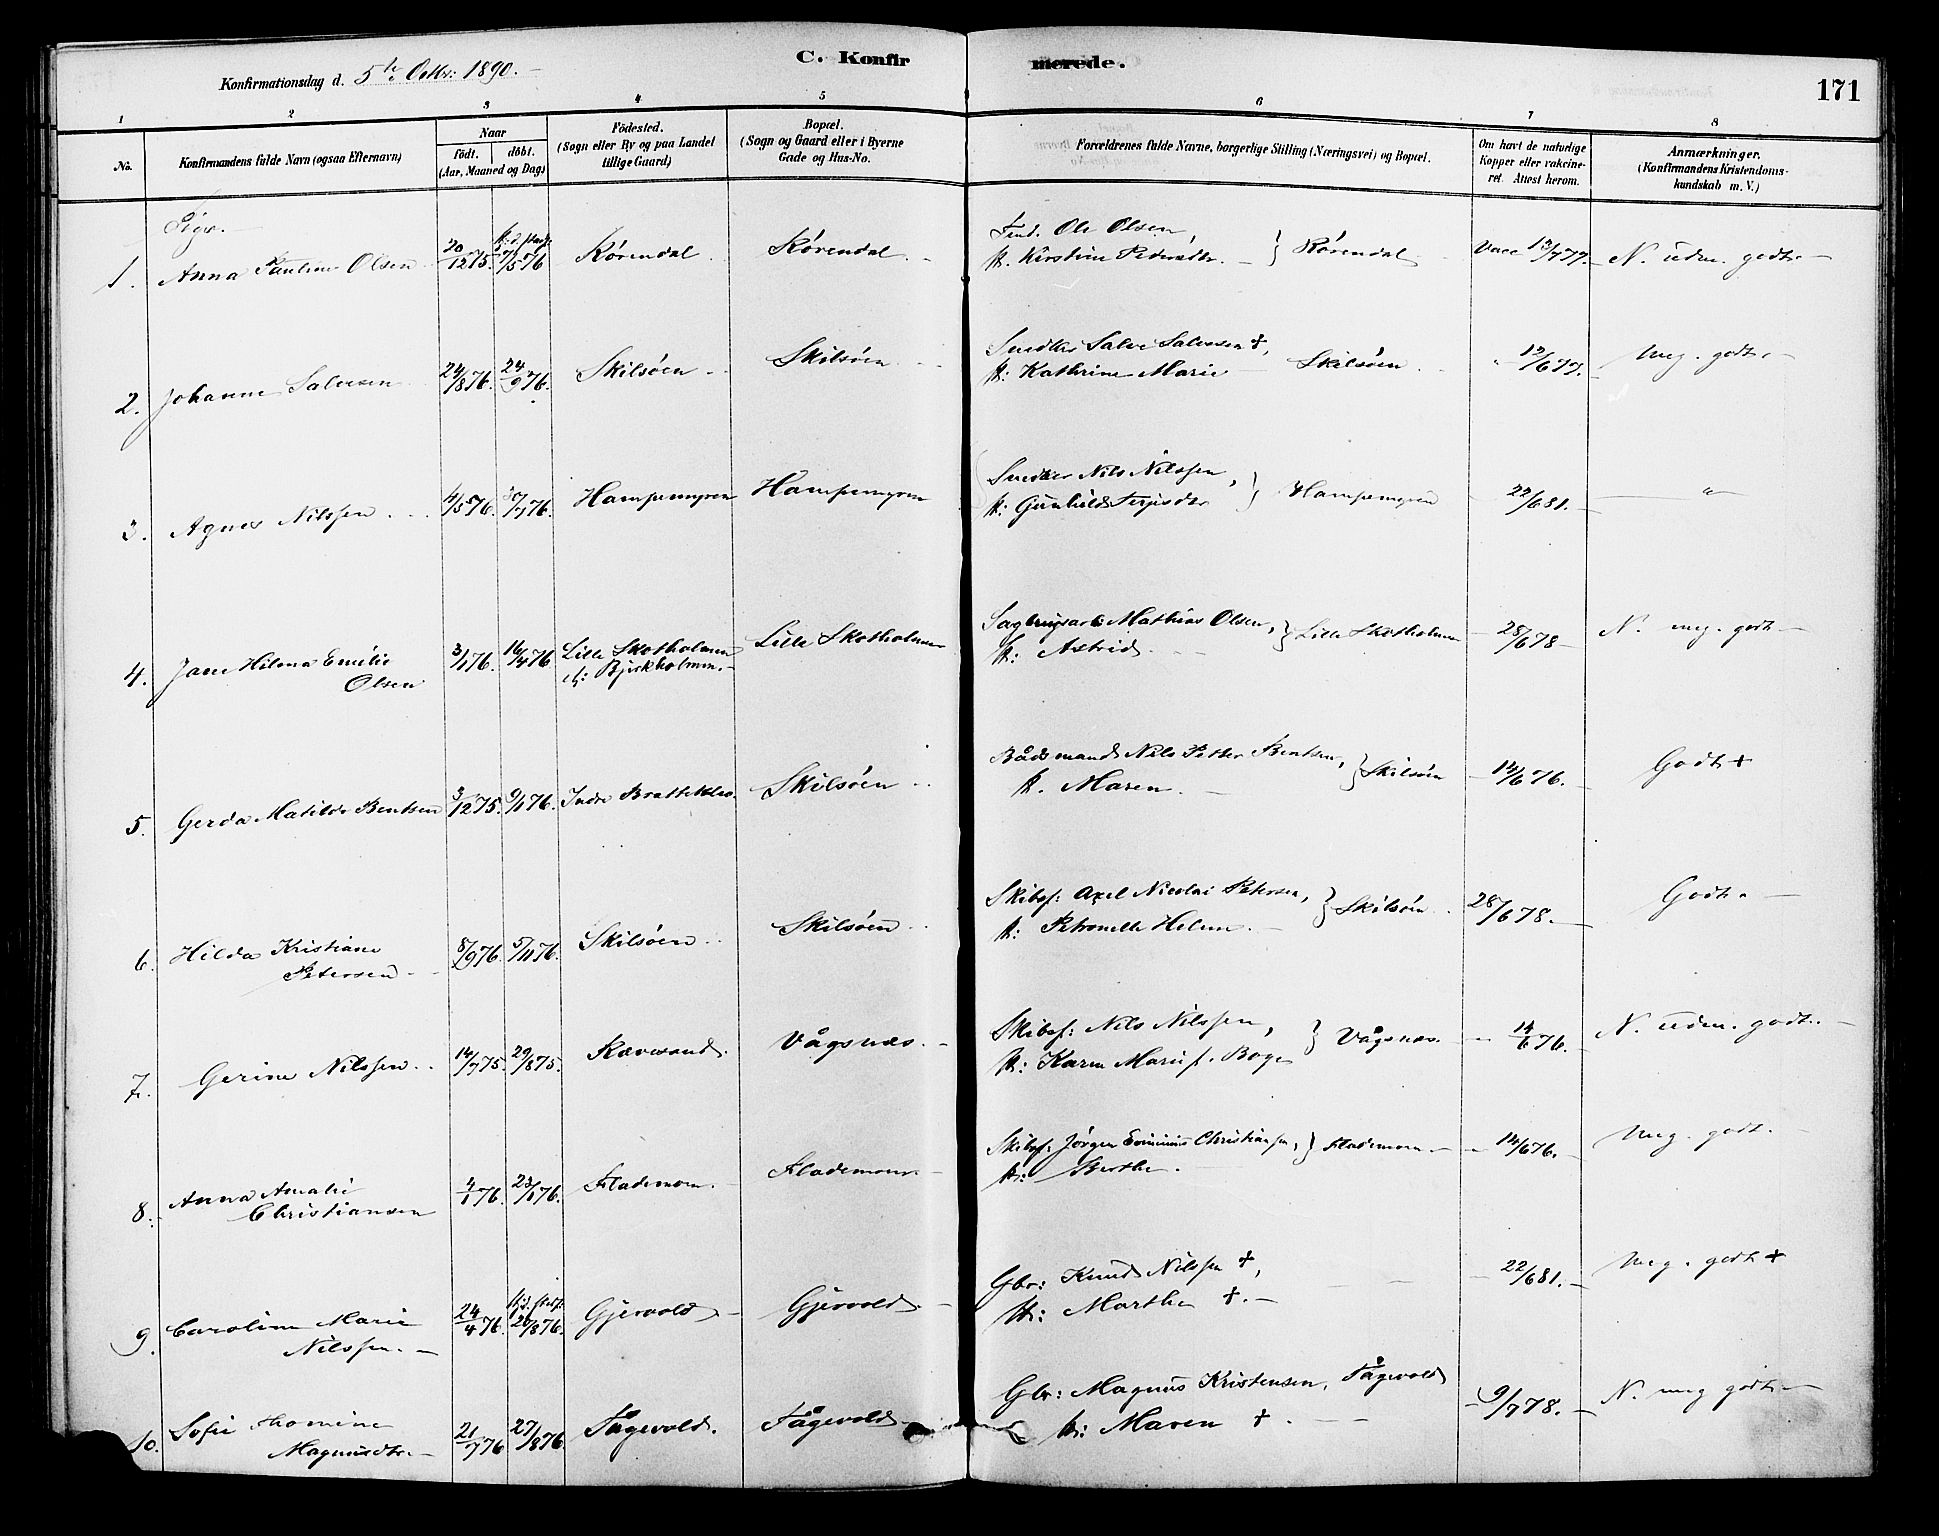 C. Konfirmerede.
171
Konfirmationsdag d. 5te Octbr: 1890.
1 2 3 4 5 6 7 8
No.
Konfirmandens fulde Navn (ogsaa Efternavn)
Naar
Födt. döbt.
(Aar, Maaned og Dag)
Födested.
(Sogn eller By og paa Landet
tillige Gaard)
Bopæl.
(Sogn og Gaard eller i Byerne
Gade og Hus-No.
Forældrenes fulde Navne, borgerlige Stilling (Næringsvei) og Bopæl.
Om havt de naturlige
Kopper eller vakcine-
ret. Attest herom.
Anmærkninger.
(Konfirmandens Kristendoms-
kundskab m. V.)
Piger.
1. Anna Pauline Olsen 20/12 75. 76 Rörendal Rörendal
Ole Olsen,
Kirstine Pedersdtr. } Rörendal Vacc 13/7 77. N. udm. godt.
2. Johanne Salvesen 24/8 76. 24/9 76. Skilsöen Skilsöen
Snedker Salve Salvesen +,
H: Kathrine Marie Skilsöen 12/6 77. Meg. godt.
3. Agnes Nilssen 4/5 76. 30/7 76. Hampemyren Hampemyren
Snedker Nils Nilssen,
H: Gunhild Terjesdtr } Hampemyren 22/6 81. "
4. Jane Hilma Emilie
Olsen 3/1 76. 16/4 76 Lille Skotholmen
Bjerkholmen. Lille Skotholmen
Sagbrugsarb: Mathias Olsen,
H: Astrid. } Lille Skotholmen 28/6 78 N. meg. godt.
5. Gerda Matilde Bentsen 3/12 75. 9/1 76. Indre Bratteklev. Skilsöen
Bådsmand Nils Petter Bentsen,
H. Maren. } Skilsöen 14/6 76. Godt +
6. Hilda Kristiane
Petersen 8/9 76 5/11 76. Skilsöen Skilsöen
Skibsf: Axel Nicolai Petersen,
H: Petronelle Helene. } Skilsöen 28/6 78. Godt.
7. Gerine Nilssen 14/7 75. 29/8 75. Revesand. Vågsnæs.
Skibsf: Nils Nilssen,
H: Karen Marie f. Boye } Vågsnæs. 14/6 76. N. udm. godt.
8. Anna Amalie
Christiansen 4/1 76. 23/1 76. Flademoen. Flademoen.
Skibsf: Jörgen Christiansen,
H: Berthe. } Flademoen. 14/6 76. Meg. godt.
9. Caroline Marie
Nilssen. 24/4 76. 20/8 76. Gjervold Gjervold
Gbr: Knud Nilssen +,
H: Marthe +. 22/6 81. Meg. godt +
10. Sofie Thomine
Magnusdtr. 21/7 76 27/8 76. Tågevold. Tågevold
Gbr: Magnus Kristensen, Tågevold
H: Maren +. 9/7 78. N. meg godt.